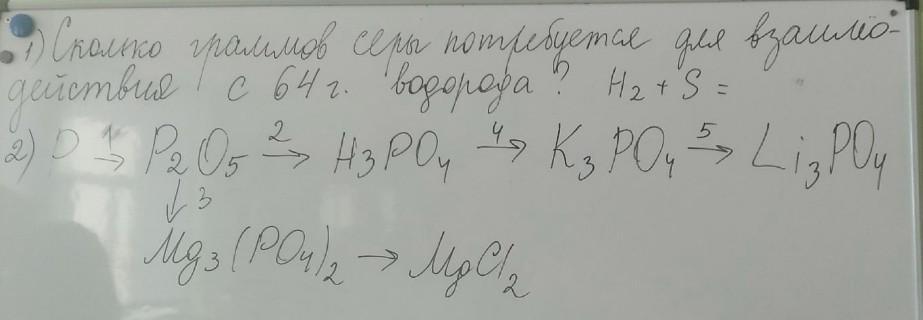 1) Сколько граммов серы потребуется для взаимо-
действия с 64 г. водорода? H₂ + S =
2) P →¹ P₂O₅ →² H₃PO₄ →⁴ K₃PO₄ →⁵ Li₃PO₄
↓ 3
Mg₃(PO₄)₂ → MgCl₂